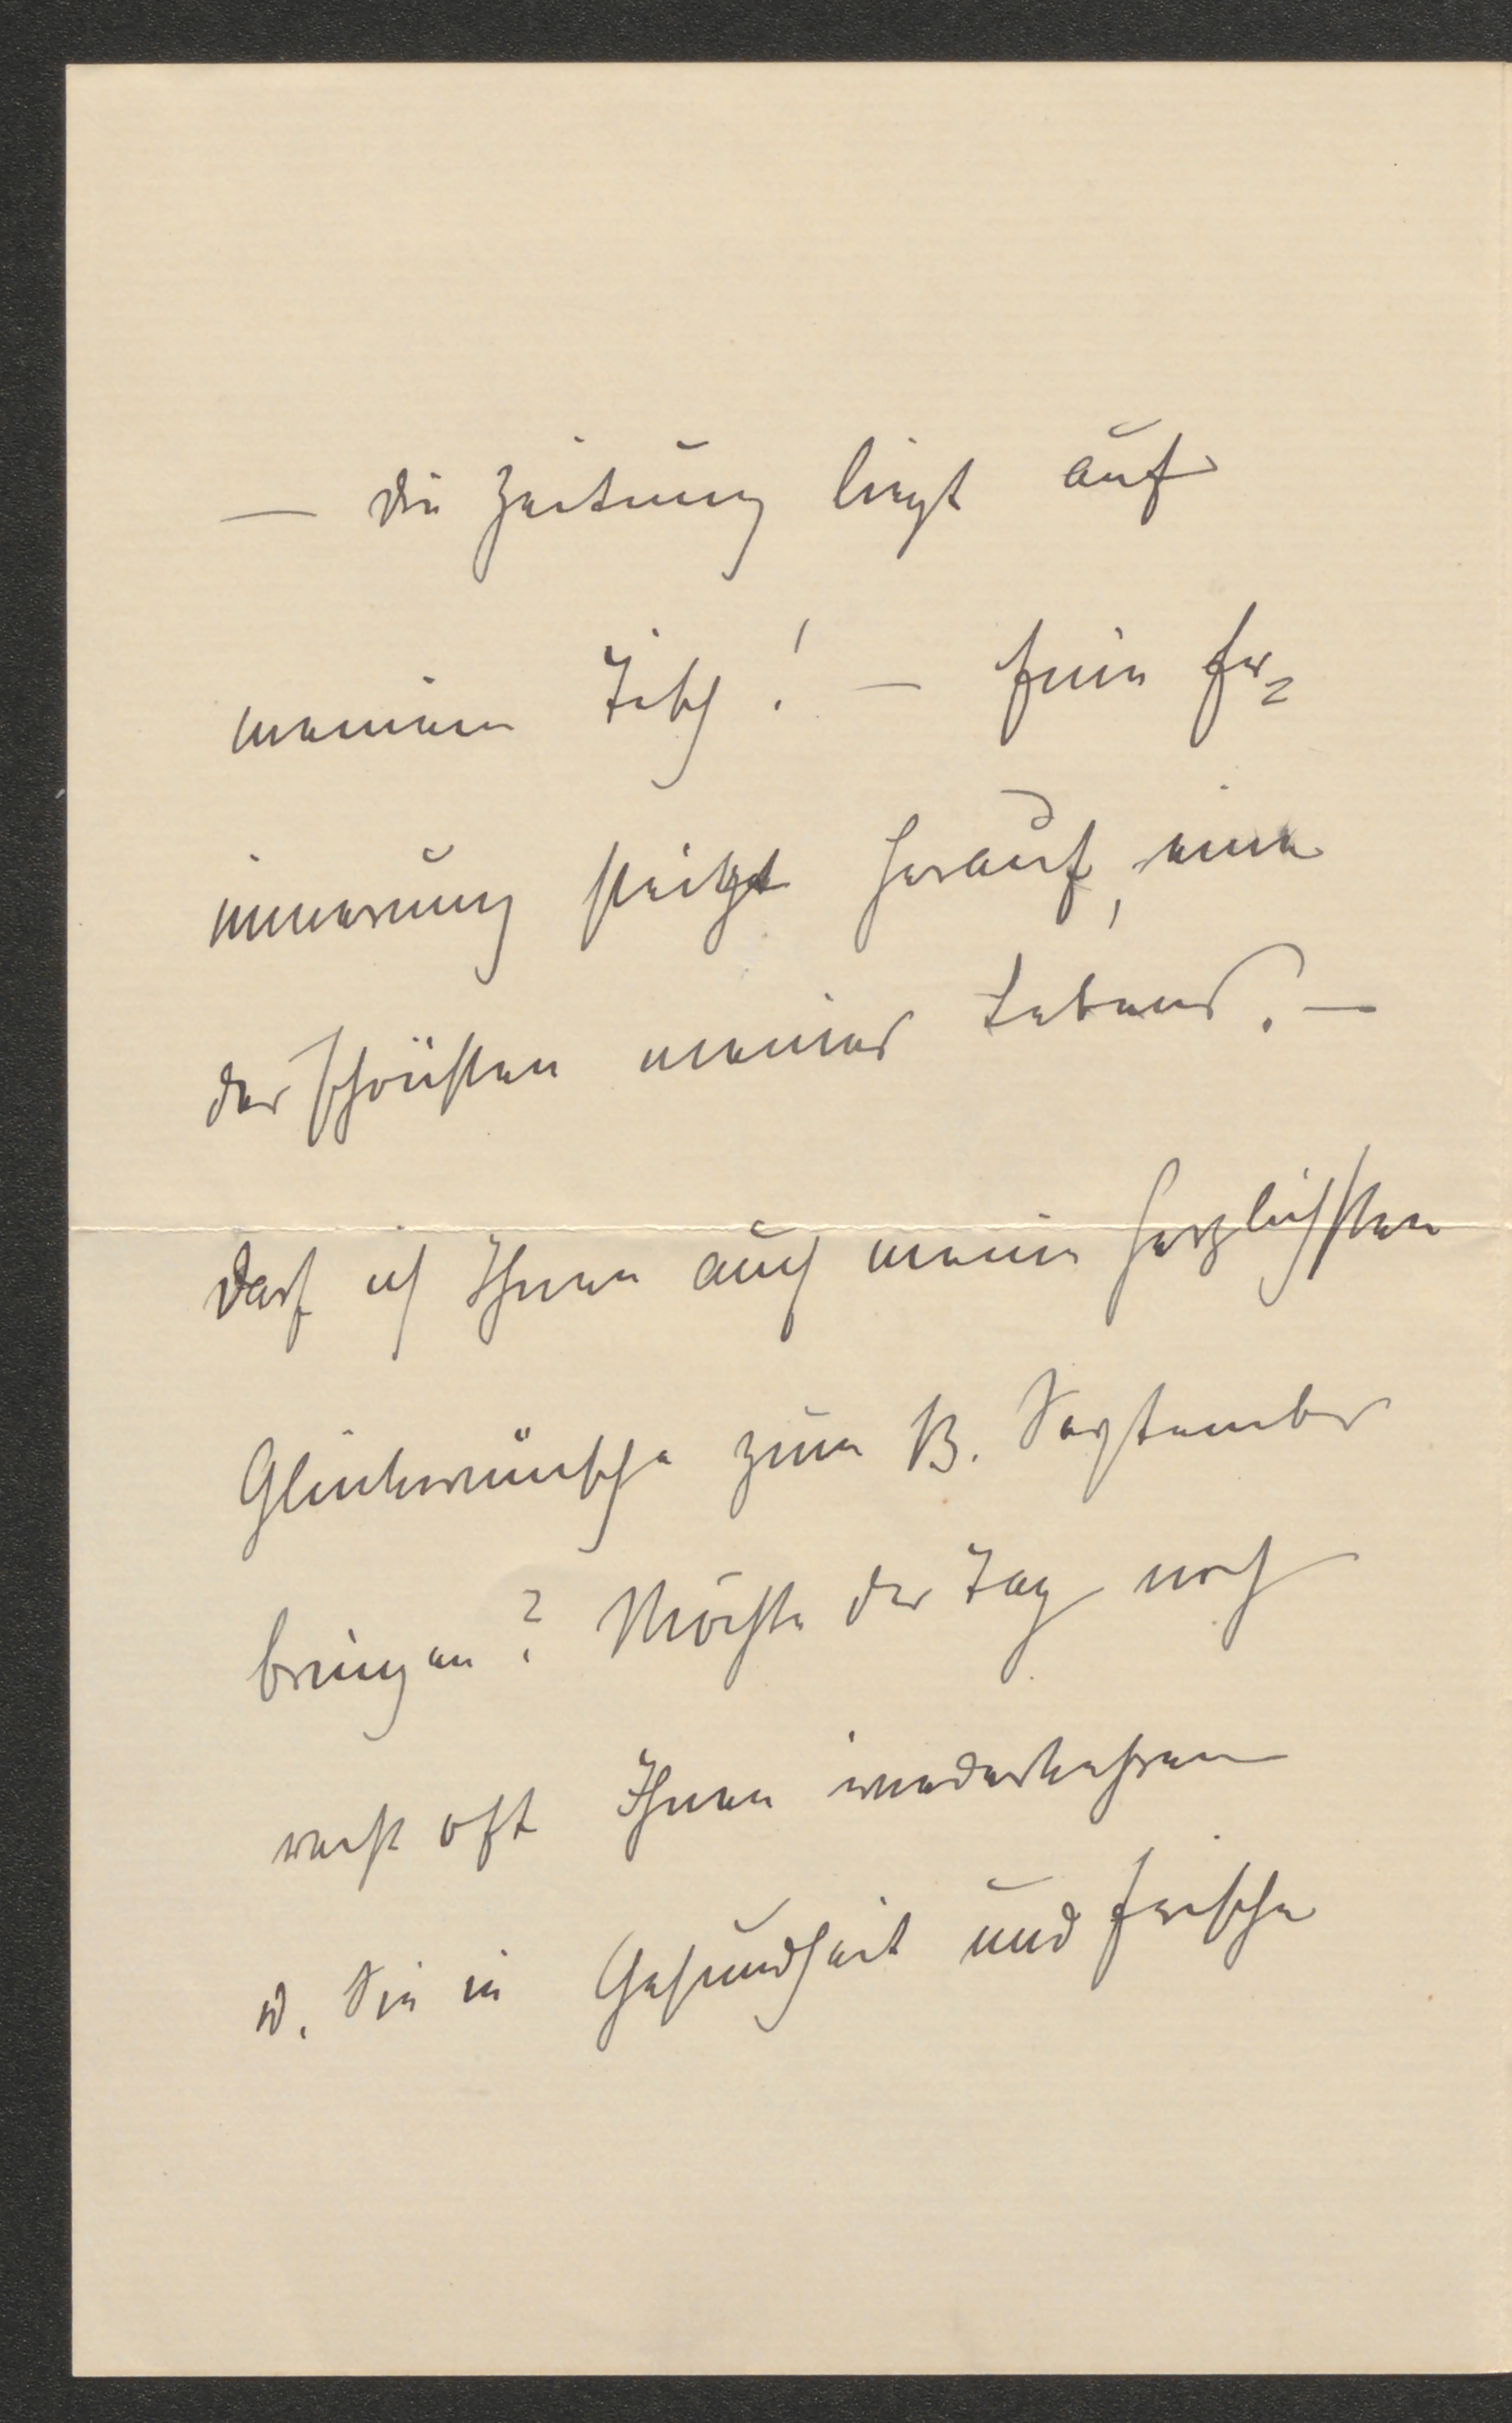 — die Zeitung liegt auf
meinem Tisch! — Eine Er-
innerung steigt herauf, eine
der schönsten meines Lebens. —
Darf ich Ihnen auch meine herzlichsten
Glückwünsche zum 13. September
bringen? Möchte der Tag noch
recht oft Ihnen wiederkehren
u. Sie in Gesundheit und Frische